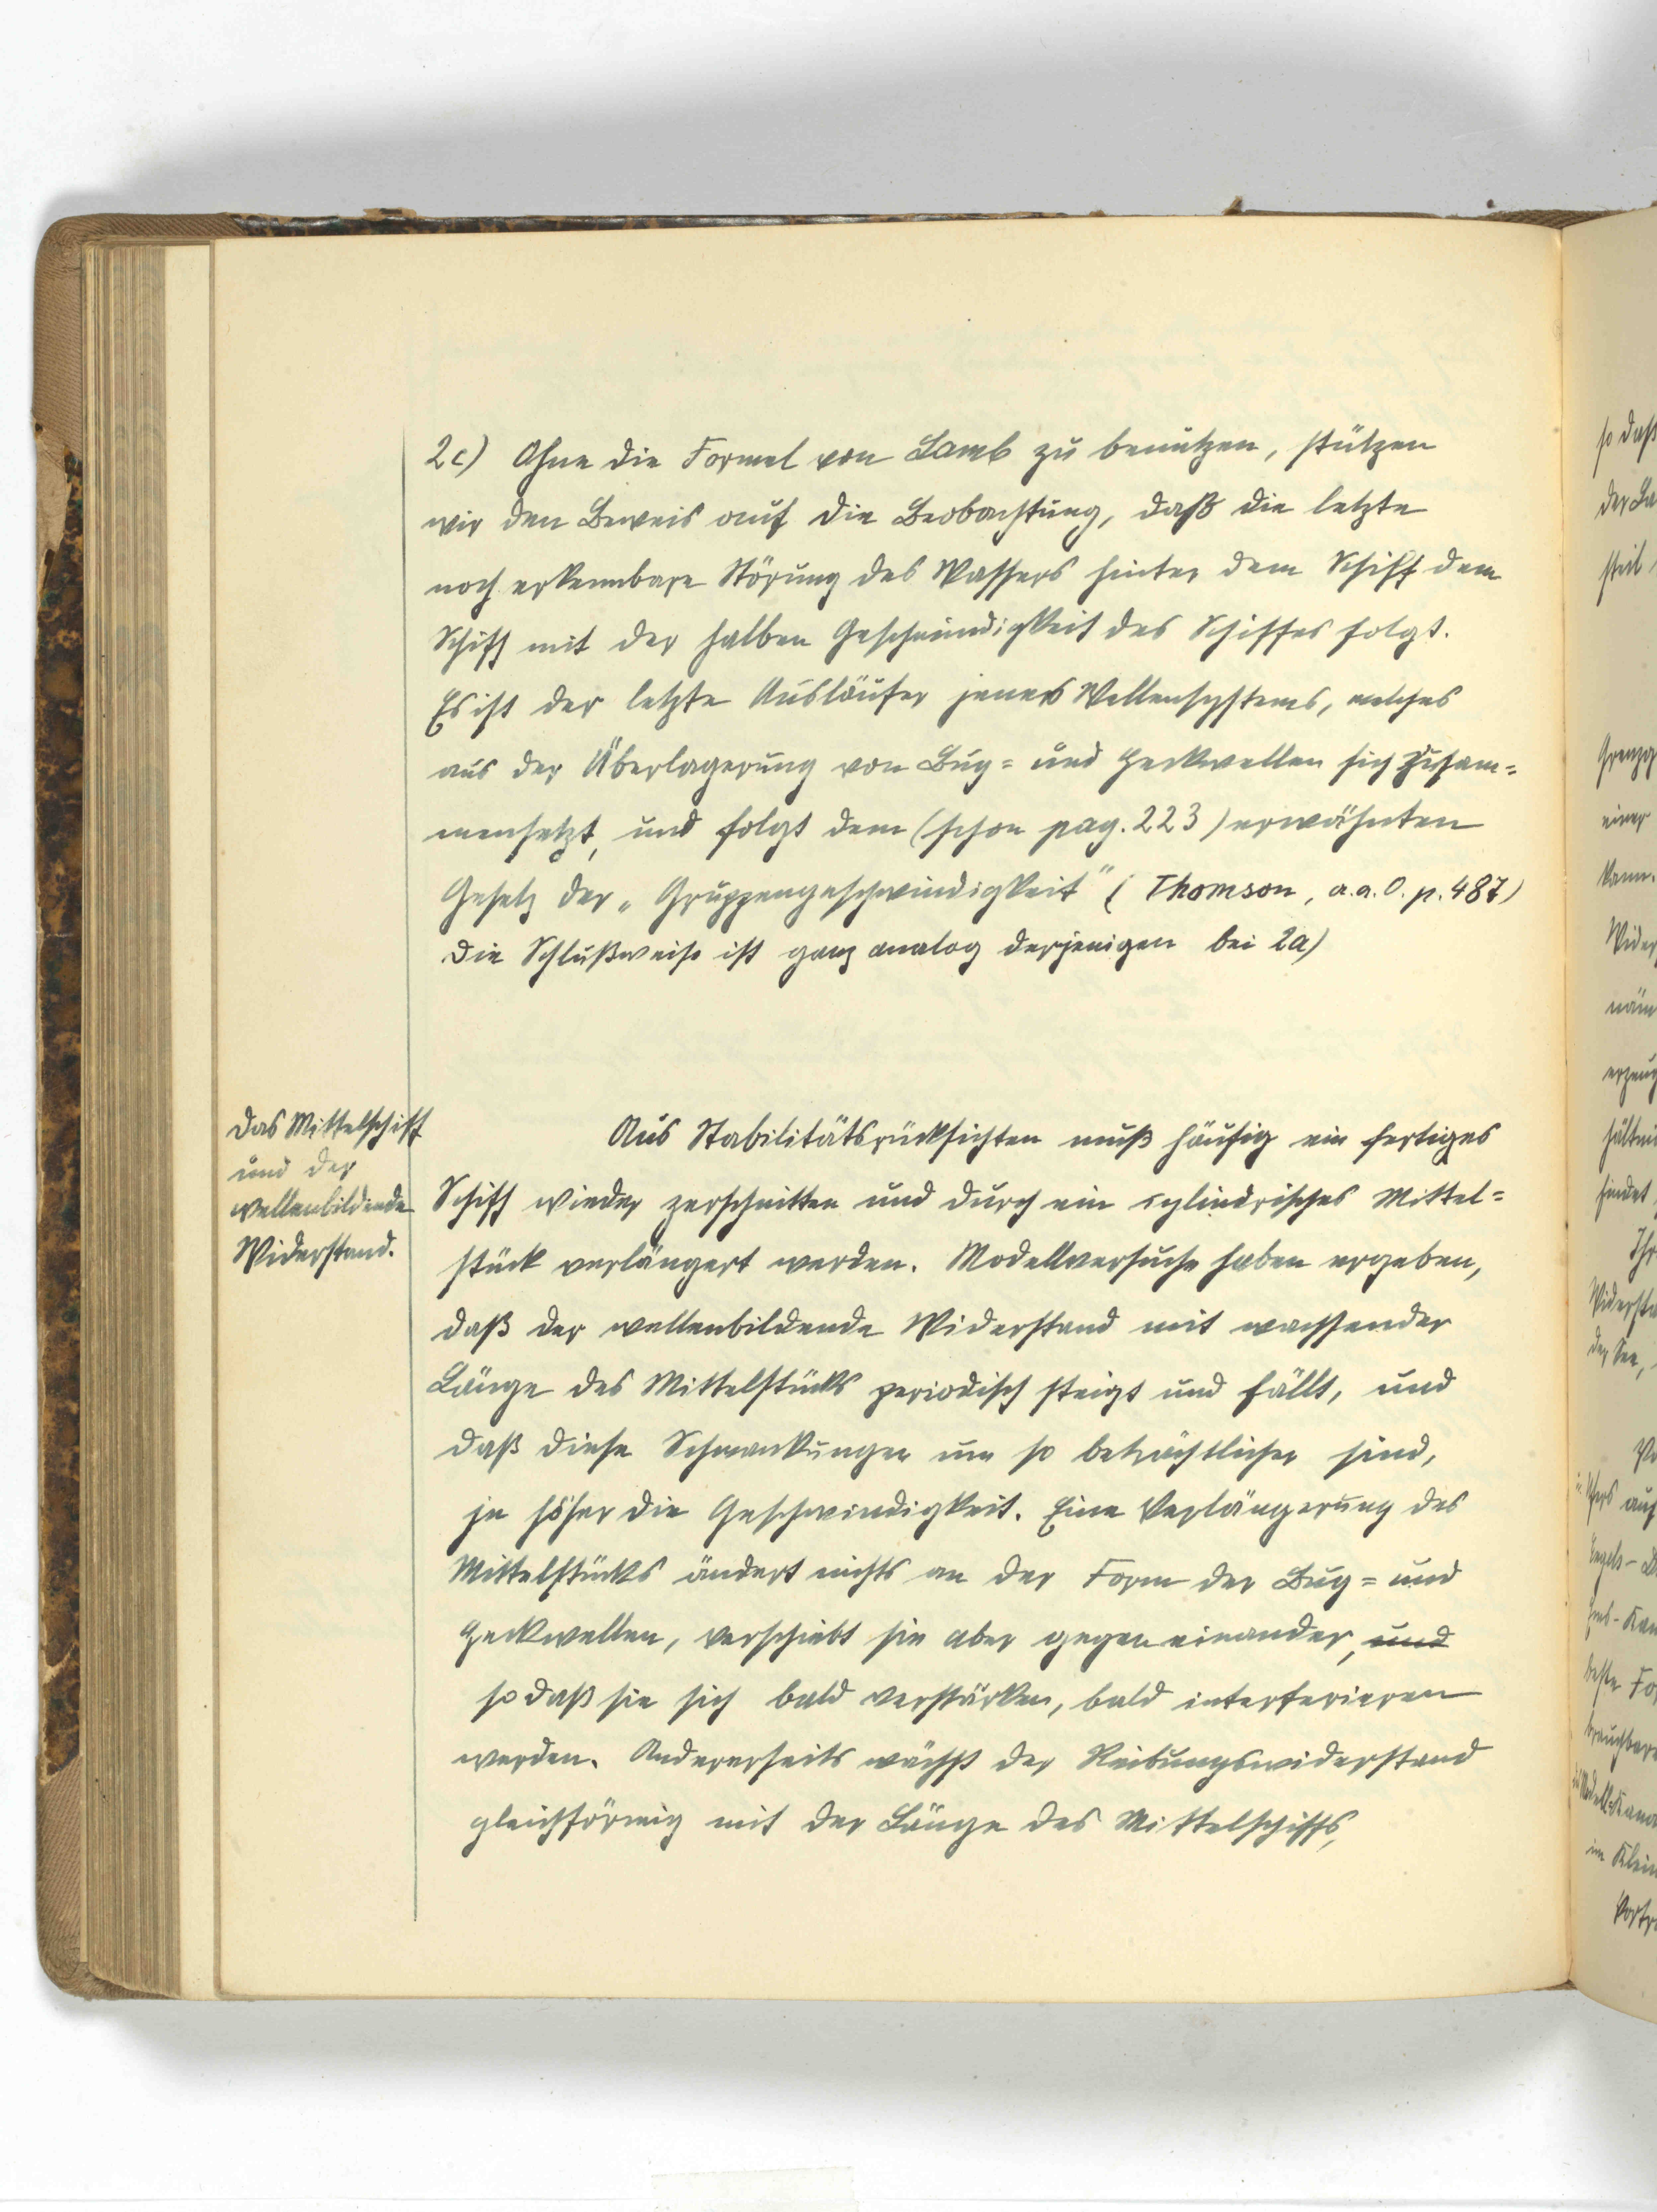 2c) Ohne die Formel von Lamb zu benützen, stützen
wir den Beweis auf die Beobachtung, daß die letzte
noch erkennbare Störung des Wassers hinter dem Schiff dem
Schiff mit der halben Geschwindigkeit des Schiffes folgt.
Es ist der letzte Ausläufer jenes Wellensystems, welches
aus der Überlagerung von Bug= und Heckwellen sich zusam=
mensetzt, und folgt dem (schon pag. 223) erwähnten
Gesetz der „Gruppengeschwindigkeit" (Thomson, a.a.O. p. 487)
Die Schlußweise ist ganz analog derjenigen bei 2a)
Das Mittelschiff
und der
wellenbildende
Widerstand.
Aus Stabilitätsrücksichten muß häufig ein fertiges
Schiff wieder zerschnitten und durch ein cylindrisches Mittel=
stück verlängert werden. Modellversuche haben ergeben,
daß der wellenbildende Widerstand mit wachsender
Länge des Mittelstücks periodisch steigt und fällt, und
daß diese Schwankungen um so beträchtlicher sind,
je höher die Geschwindigkeit. Eine Verlängerung des
Mittelstücks ändert nichts an der Form der Bug= und
Heckwellen, verschiebt sie aber gegen einander, und
so daß sie sich bald verstärken, bald interferieren
werden. Andererseits wächst der Reibungswiderstand
gleichförmig mit der Länge des Mittelschiffs,
so daß
steil,
einer
kann.
findet